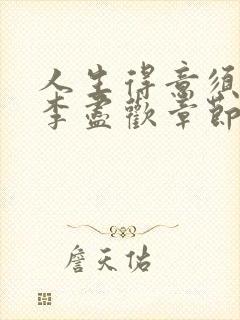 人生得意须
李盡歡章節
詹天佑